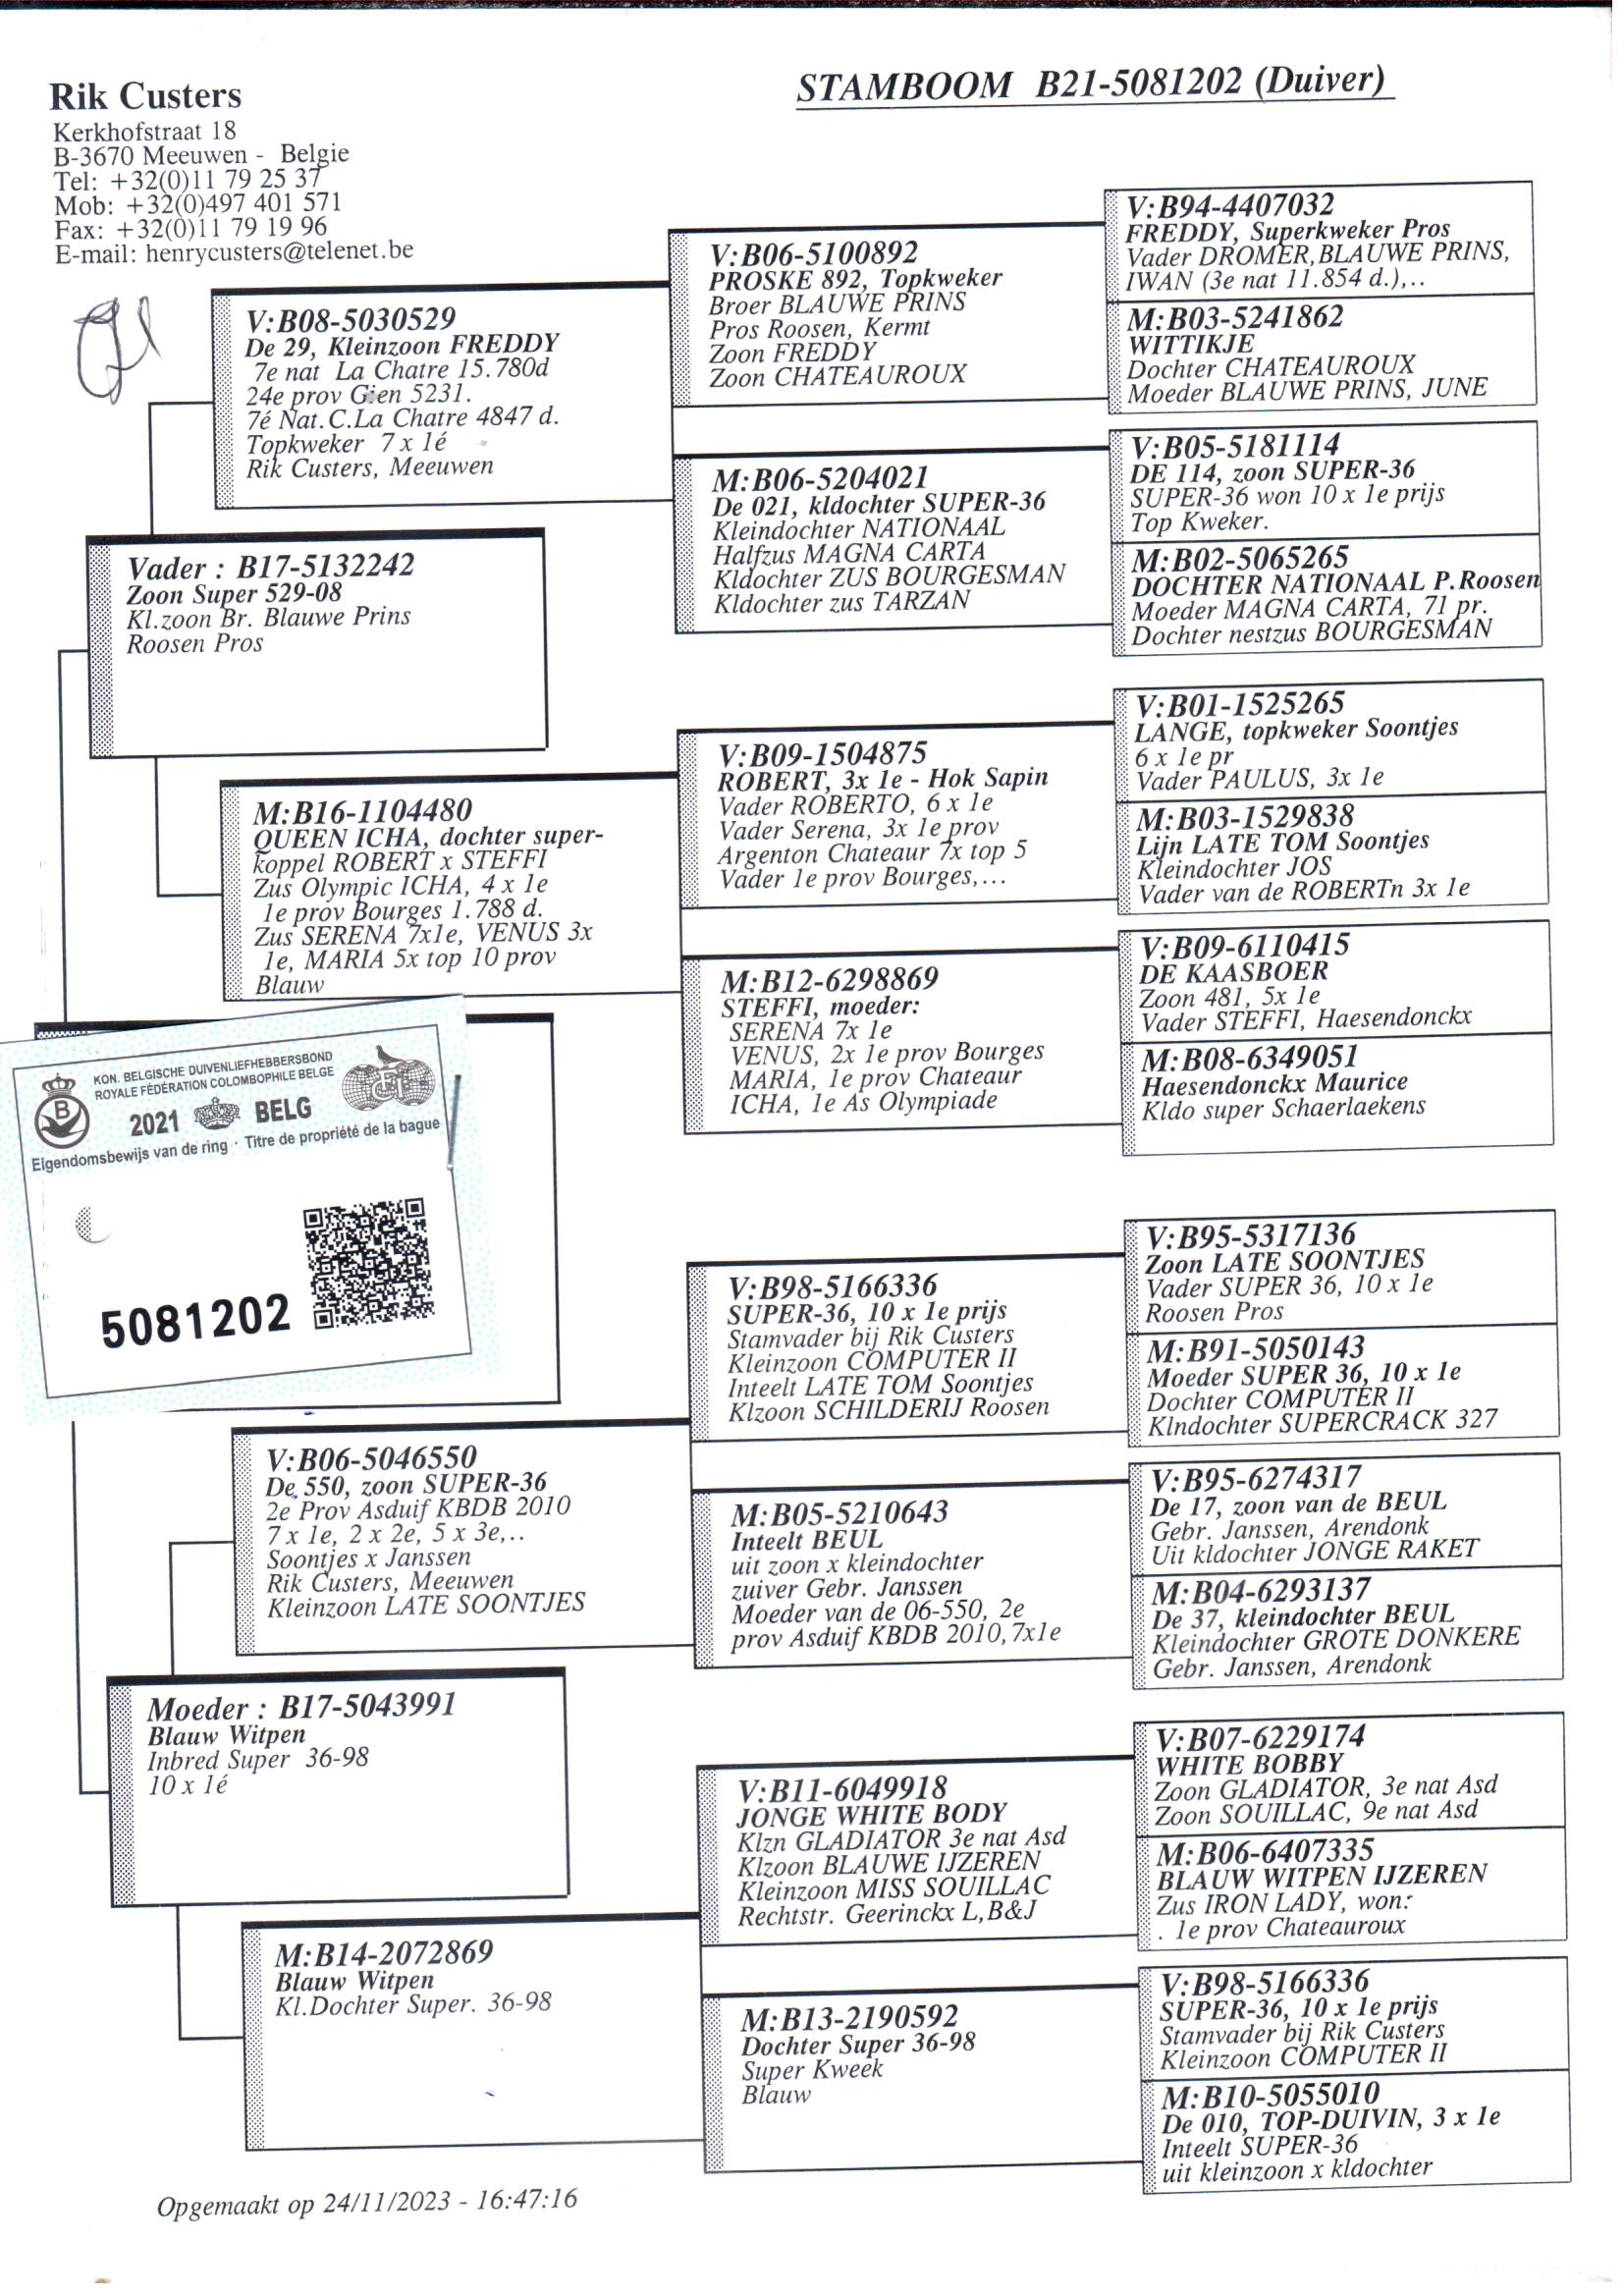 STAMBOOM B21-5081202 (Duiver)
Rik Custers
Kerkhofstraat 18
B-3670 Meeuwen - Belgie
Tel: +32(0)11 79 25 37
Mob: +32(0)497 401 571
Fax: +32(0)11 79 19 96
E-mail: henrycusters@telenet.be
V:B08-5030529
De 29, Kleinzoon FREDDY
7e nat La Chatre 15.780d
24e prov Gien 5231.
7é Nat.C.La Chatre 4847 d.
Topkweker 7 x 1é
Rik Custers, Meeuwen
Vader : B17-5132242
Zoon Super 529-08
Kl.zoon Br. Blauwe Prins
Roosen Pros
M:B16-1104480
QUEEN ICHA, dochter super-
koppel ROBERT x STEFFI
Zus Olympic ICHA, 4 x 1e
1e prov Bourges 1.788 d.
Zus SERENA 7x1e, VENUS 3x
1e, MARIA 5x top 10 prov
Blauw
V:B06-5100892
PROSKE 892, Topkweker
Broer BLAUWE PRINS
Pros Roosen, Kermt
Zoon FREDDY
Zoon CHATEAUROUX
M:B06-5204021
De 021, kldochter SUPER-36
Kleindochter NATIONAAL
Halfzus MAGNA CARTA
Kldochter ZUS BOURGESMAN
Kldochter zus TARZAN
V:B09-1504875
ROBERT, 3x 1e - Hok Sapin
Vader ROBERTO, 6 x 1e
Vader Serena, 3x 1e prov
Argenton Chateaur 7x top 5
Vader 1e prov Bourges,...
M:B12-6298869
STEFFI, moeder:
SERENA 7x 1e
VENUS, 2x 1e prov Bourges
MARIA, 1e prov Chateaur
ICHA, 1e As Olympiade
V:B94-4407032
FREDDY, Superkweker Pros
Vader DROMER,BLAUWE PRINS,
IWAN (3e nat 11.854 d.),..
M:B03-5241862
WITTIKJE
Dochter CHATEAUROUX
Moeder BLAUWE PRINS, JUNE
V:B05-5181114
DE 114, zoon SUPER-36
SUPER-36 won 10 x 1e prijs
Top Kweker.
M:B02-5065265
DOCHTER NATIONAAL P.Roosen
Moeder MAGNA CARTA, 71 pr.
Dochter nestzus BOURGESMAN
V:B01-1525265
LANGE, topkweker Soontjes
6 x 1e pr
Vader PAULUS, 3x 1e
M:B03-1529838
Lijn LATE TOM Soontjes
Kleindochter JOS
Vader van de ROBERTn 3x 1e
V:B09-6110415
DE KAASBOER
Zoon 481, 5x 1e
Vader STEFFI, Haesendonckx
M:B08-6349051
Haesendonckx Maurice
Kldo super Schaerlaekens
KON. BELGISCHE DUIVENLIEFHEBBERSBOND
ROYALE FÉDÉRATION COLOMBOPHILE BELGE
B
2021 BELG
FCI
Eigendomsbewijs van de ring · Titre de propriété de la bague
5081202
V:B06-5046550
De 550, zoon SUPER-36
2e Prov Asduif KBDB 2010
7 x 1e, 2 x 2e, 5 x 3e,..
Soontjes x Janssen
Rik Custers, Meeuwen
Kleinzoon LATE SOONTJES
Moeder : B17-5043991
Blauw Witpen
Inbred Super 36-98
10 x 1é
M:B14-2072869
Blauw Witpen
Kl.Dochter Super. 36-98
V:B98-5166336
SUPER-36, 10 x 1e prijs
Stamvader bij Rik Custers
Kleinzoon COMPUTER II
Inteelt LATE TOM Soontjes
Klzoon SCHILDERIJ Roosen
M:B05-5210643
Inteelt BEUL
uit zoon x kleindochter
zuiver Gebr. Janssen
Moeder van de 06-550, 2e
prov Asduif KBDB 2010,7x1e
V:B11-6049918
JONGE WHITE BODY
Klzn GLADIATOR 3e nat Asd
Klzoon BLAUWE IJZEREN
Kleinzoon MISS SOUILLAC
Rechtstr. Geerinckx L,B&J
M:B13-2190592
Dochter Super 36-98
Super Kweek
Blauw
V:B95-5317136
Zoon LATE SOONTJES
Vader SUPER 36, 10 x 1e
Roosen Pros
M:B91-5050143
Moeder SUPER 36, 10 x 1e
Dochter COMPUTER II
Klndochter SUPERCRACK 327
V:B95-6274317
De 17, zoon van de BEUL
Gebr. Janssen, Arendonk
Uit kldochter JONGE RAKET
M:B04-6293137
De 37, kleindochter BEUL
Kleindochter GROTE DONKERE
Gebr. Janssen, Arendonk
V:B07-6229174
WHITE BOBBY
Zoon GLADIATOR, 3e nat Asd
Zoon SOUILLAC, 9e nat Asd
M:B06-6407335
BLAUW WITPEN IJZEREN
Zus IRON LADY, won:
. 1e prov Chateauroux
V:B98-5166336
SUPER-36, 10 x 1e prijs
Stamvader bij Rik Custers
Kleinzoon COMPUTER II
M:B10-5055010
De 010, TOP-DUIVIN, 3 x 1e
Inteelt SUPER-36
uit kleinzoon x kldochter
Opgemaakt op 24/11/2023 - 16:47:16